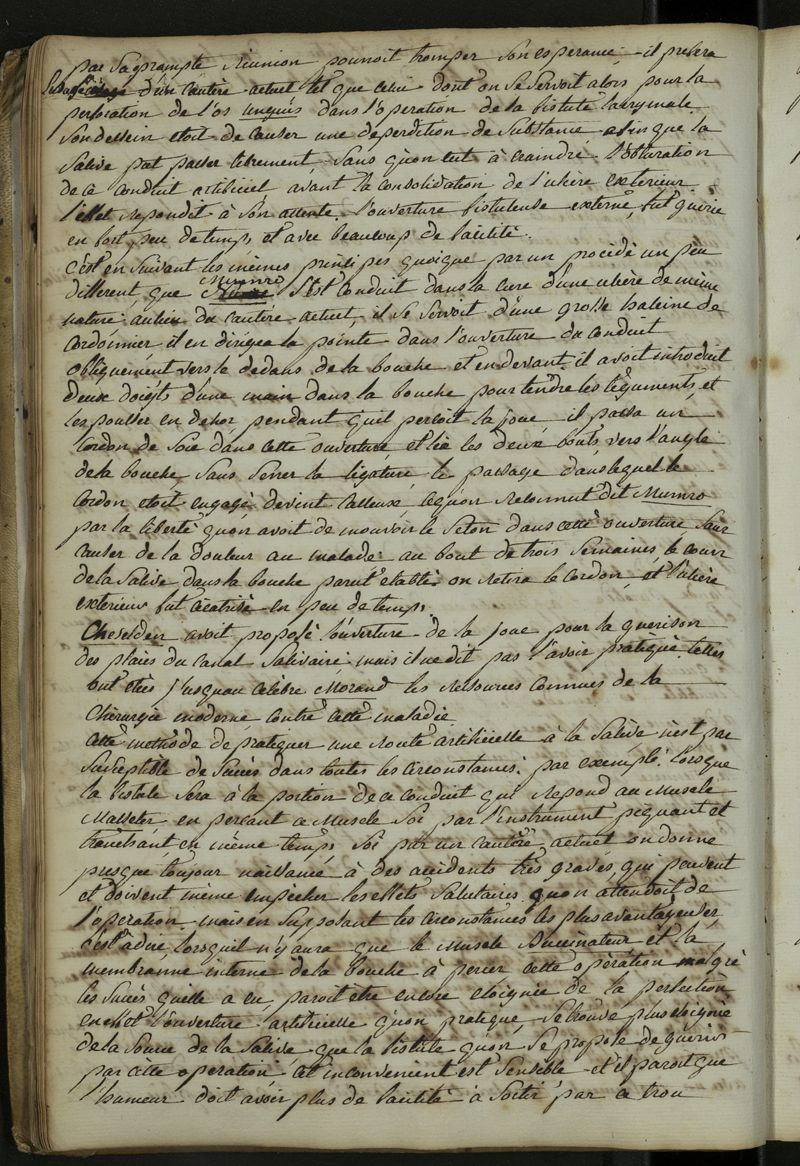 par sa prompte reunion pourroit tromper son esperance il prefera
l'usage d'un cautere actuel tel que celui dont on se servoit alors pour la
perforation de l'os unguis dans l'operation de la fistule lacrymale.
son dessein etoit de causer une deperdition de substance afin que la
salive put passer librement, sans qu'on eut à craindre l'obturation
de ce conduit artificiel avant la consolidation de l'ulcere exterieur.
l'effet repondit à son attente. l'ouverture fistuleuse externe fut guerie
en fort peu de temps et avec beaucoup de facilité.
c'est en suivant les mêmes principes quoique par un procedé un peu
different, que Munro s'est conduit dans la cure d'une ulcere de même
nature au lieu du cautere actuel, il se servoit d'une grosse haleine de
cordonnier il en dirigea la pointe dans l'ouverture du conduit
obliquement vers le dedans de la bouche et en devant. il avoit introduit
deux doigts d'une main dans la bouche pour tendre les teguments, et
les pousser en dehor pendant quil percoit la joue, il passa un
cordon de soie dans cette ouverture et lia les deux bouts vers l'angle
de la bouche sans serrer la ligature le passage dans lequel le
cordon etoit engagé devint calleux, ce quon reconnut dit Munro
par la liberté quon avoit de mouvoir le seton dans cette ouverture sans
causer de la douleur au malade. au bout de trois semaines, le cours
de la salive dans la bouche parut etabli on retira le cordon, et l'ulcere
exterieur fut cicatrisé en peu de temps.
Cheselden avoit proposé l'ouverture de la joue pour la guerison
des plaies du canal salivaire mais il ne dit pas l'avoir pratiqué. telles
ont etées jusquau celebre Morand les ressources connues de la
Chirurgie moderne contre cette maladie.
cette methode de pratiquer une route artificielle à la salive n'est pas
susceptible de succès dans toutes les circonstances. par exemple. lorsque
la fistule sera à la portion de ce conduit qui repond au Muscle
Masseter en percant ce Muscle soi par l'instrument piquant et
tranchant en même temps soi par un cautere actuel on donne
presque toujour naissance à des accidents très graves, qui peuvent
et doivent même empecher les effets salutaires quon attendoit de
l'operation mais en supposant les circonstances les plus avantageuses,
c'est a dire, lorsquil n'y aura que le Muscle Buccinateur et la
membranne interne de la bouche à percer cette operation malgré
les succès quelle a eu, paroit etre encore eloignée de la perfection
en effet l'ouverture artificielle qu'on pratique, se trouve plus eloignée
de la source de la salive que la fistule quon se propose de guerir
par cette operation cet inconvenient est sensible et il paroit que
l'humeur doit avoir plus de facilité à sortir par ce trou